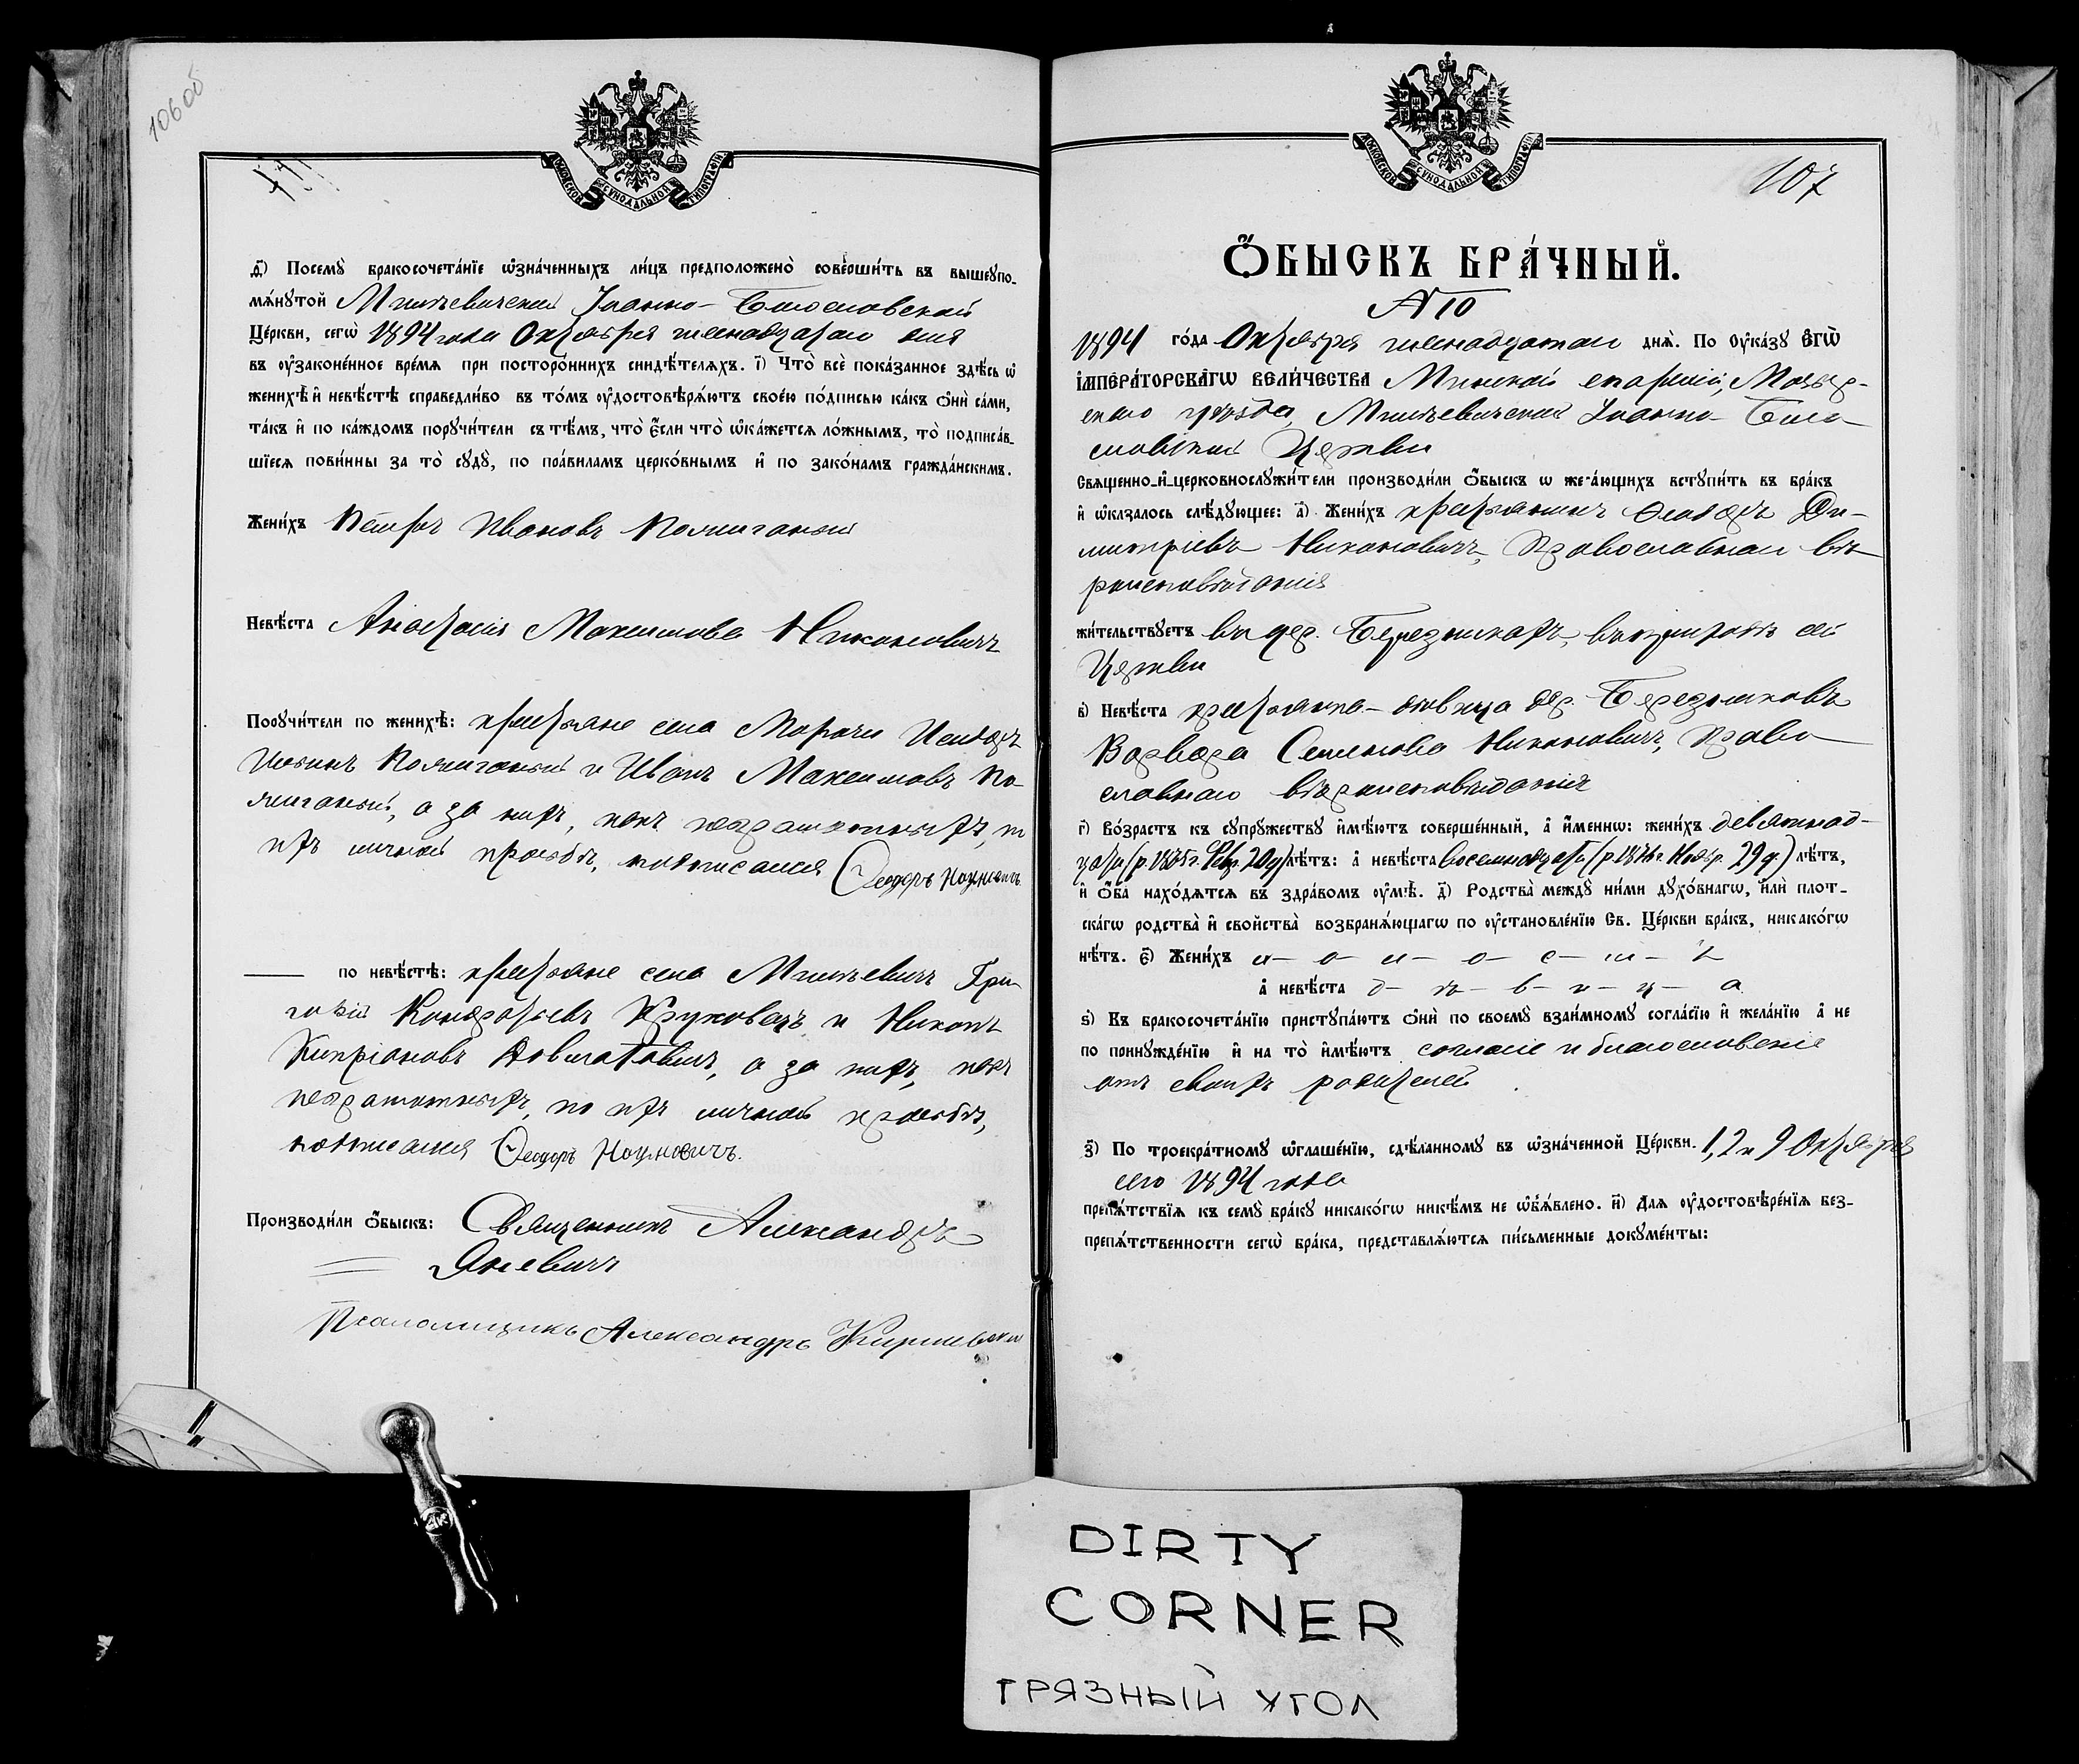 106об
МОСКОВСКОЙ СѴНОДАЛЬНОЙ ТИПОГРАФІИ
д҃і) Посемꙋ̀ бракосочета́нїе ѡ҆зна́ченныхъ ли́цъ предположено̀ соверши́ть въ вышеꙋпо-
мѧ́нꙋтой Мнишевичской Іоанно-Богословской
Це́ркви, сегѡ̀ 1894 года Октября шестнадцатаго дня
въ ᲂу҆законе́нное вре́мѧ при посторо́ннихъ свидѣ́телѧхъ. і҃) Что̀ всѐ пока́занное здѣ́сь ѡ҆
женихѣ̀ и҆ невѣ́стѣ справедли́во въ то́мъ ᲂу҆достовѣрѧ́ютъ свое́ю по́дписью ка́къ ѻ҆нѝ са́ми,
та́къ и҆ по ка́ждомъ порꙋчи́тели съ тѣ́мъ, что̀ є҆́сли что̀ ѡ҆ка́жетсѧ ло́жнымъ, то̀ подписа́в-
шїесѧ пови́нны за то̀ сꙋдꙋ̀, по пра́виламъ церко́внымъ и҆ по зако́намъ гражда́нскимъ.
Жени́хъ Петръ Ивановъ
Невѣ́ста Анастасія Максимова Никоновичъ
Порꙋчи́тели по женихѣ̀: крестьяне села Морочи Исидоръ
и Иванъ Максимовъ По-
а за нихъ, какъ неграмотныхъ, по
ихъ личной просьбѣ, подписался Ѳеодоръ Наумовичъ.
по невѣ́стѣ: крестьяне села Мнишевичъ Гри-
горій Кондратьевъ Круковецъ и Никонъ
Кипріановъ а за нихъ, какъ
неграмотныхъ, по ихъ личной просьбѣ,
подписался Ѳеодоръ Наумовичъ.
Производи́ли ѻ҆́быскъ: Священникъ Александръ
Яневичъ
Псаломщикъ Александръ
МОСКОВСКОЙ СѴНОДАЛЬНОЙ ТИПОГРАФІИ
107
Ѻ҆́БЫСКЪ БРА́ЧНЫЙ.
№ 10
1894 го́да Октября шестнадцатаго днѧ̀. По ᲂу҆ка́зꙋ Є҆ГѠ̀
І҆МПЕРА́ТОРСКАГѠ ВЕЛИ́ЧЕСТВА Минской епархіи, Мозыр-
скаго уѣзда, Мнишевичской Іоанно-Бого-
словской Церкви
Свѧщенно-и҆-церковнослꙋжи́тели производи́ли ѻ҆́быскъ ѡ же-а́ющихъ встꙋпи́ть въ бра́къ
и҆ ѡ҆казалось слѣ́дꙋющее: а҃) Жени́хъ крестьянинъ Ѳеодоръ Ди-
митріевъ Никоновичъ, Православнаго вѣ-
роисповѣданія
жи́тельствꙋетъ въ дер. Березникахъ, въ приходѣ сей
Церкви
в҃) Невѣ́ста крестьянка-дѣвица дер. Березниковъ
Варвара Семенова Никоновичъ, Право-
славнаго вѣроисповѣданія
г҃) Во́зрастъ къ сꙋпрꙋ́жествꙋ и҆мѣ́ютъ соверше́нный, а҆ и҆́меннѡ: жени́хъ девятнад-
цати (р. 1875 г. Февр. 20 д) лѣ́тъ: а҆ невѣ́ста восемнадцати (р. 1876 г. Ноябр. 29 д.) лѣ́тъ,
и҆ ѻ҆́ба нахо́дѧтсѧ въ здра́вомъ ᲂу҆мѣ̀. д҃) Родства̀ междꙋ̀ ни́ми дꙋхо́внагѡ, и҆лѝ плот-
ска́гѡ родства̀ и҆ сво́йства̀ возбранѧ́ющагѡ по ᲂу҆становле́нїю Св. Це́ркви бра́къ, никако́гѡ
нѣ́тъ. є҃) Жени́хъ х-о-л-о-с-т-ъ
а҆ невѣ́ста д-ѣ-в-и-ц-а
ѕ҃) Къ бракосочета́нїю пристꙋпа́ютъ ѻ҆нѝ по своемꙋ̀ взаи́мномꙋ согла́сїю и҆ жела́нїю а҆ не
по принꙋжде́нїю и҆ на то̀ и҆мѣ́ютъ согласіе и благословеніе
отъ своихъ родителей
з҃) По троекра́тномꙋ ѡ҆глаше́нїю, сдѣ́ланномꙋ въ ѡ҆зна́ченной Це́ркви. 1, 2 и 9 Октября
сего 1894 года
препѧ́тствїѧ къ семꙋ̀ бра́кꙋ никако́гѡ никѣ́мъ не ѡ҆б̾ѧ́влено. и҃) Длѧ ᲂу҆достовѣре́нїѧ без-
препѧ́тственности сегѡ̀ бра́ка, представлѧ́ютсѧ пи́сьменные докꙋме́нты:
DIRTY
CORNER
ГРЯЗНЫЙ УГОЛ